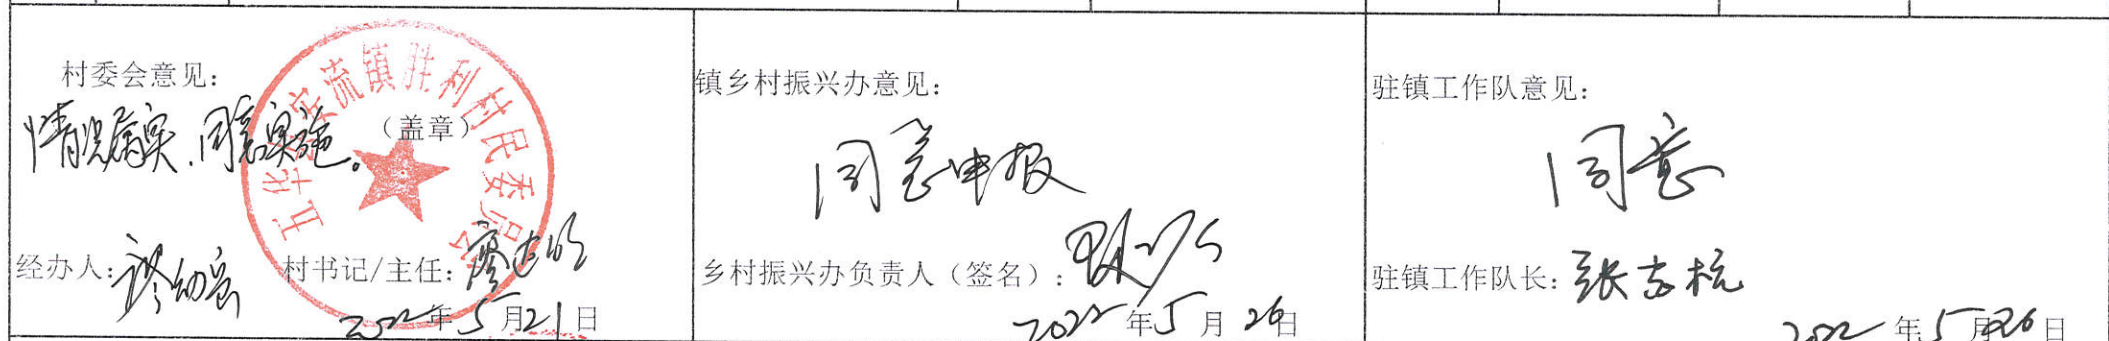 村委会意见：
情况属实，同意实施。
（盖章）
五华县安流镇胜利村民委员会
经办人：
村书记/主任：廖志明
2022年5月21日
镇乡村振兴办意见：
同意申报
乡村振兴办负责人（签名）：
2022年5月26日
驻镇工作队意见：
同意
驻镇工作队长：张志杭
2022年5月26日